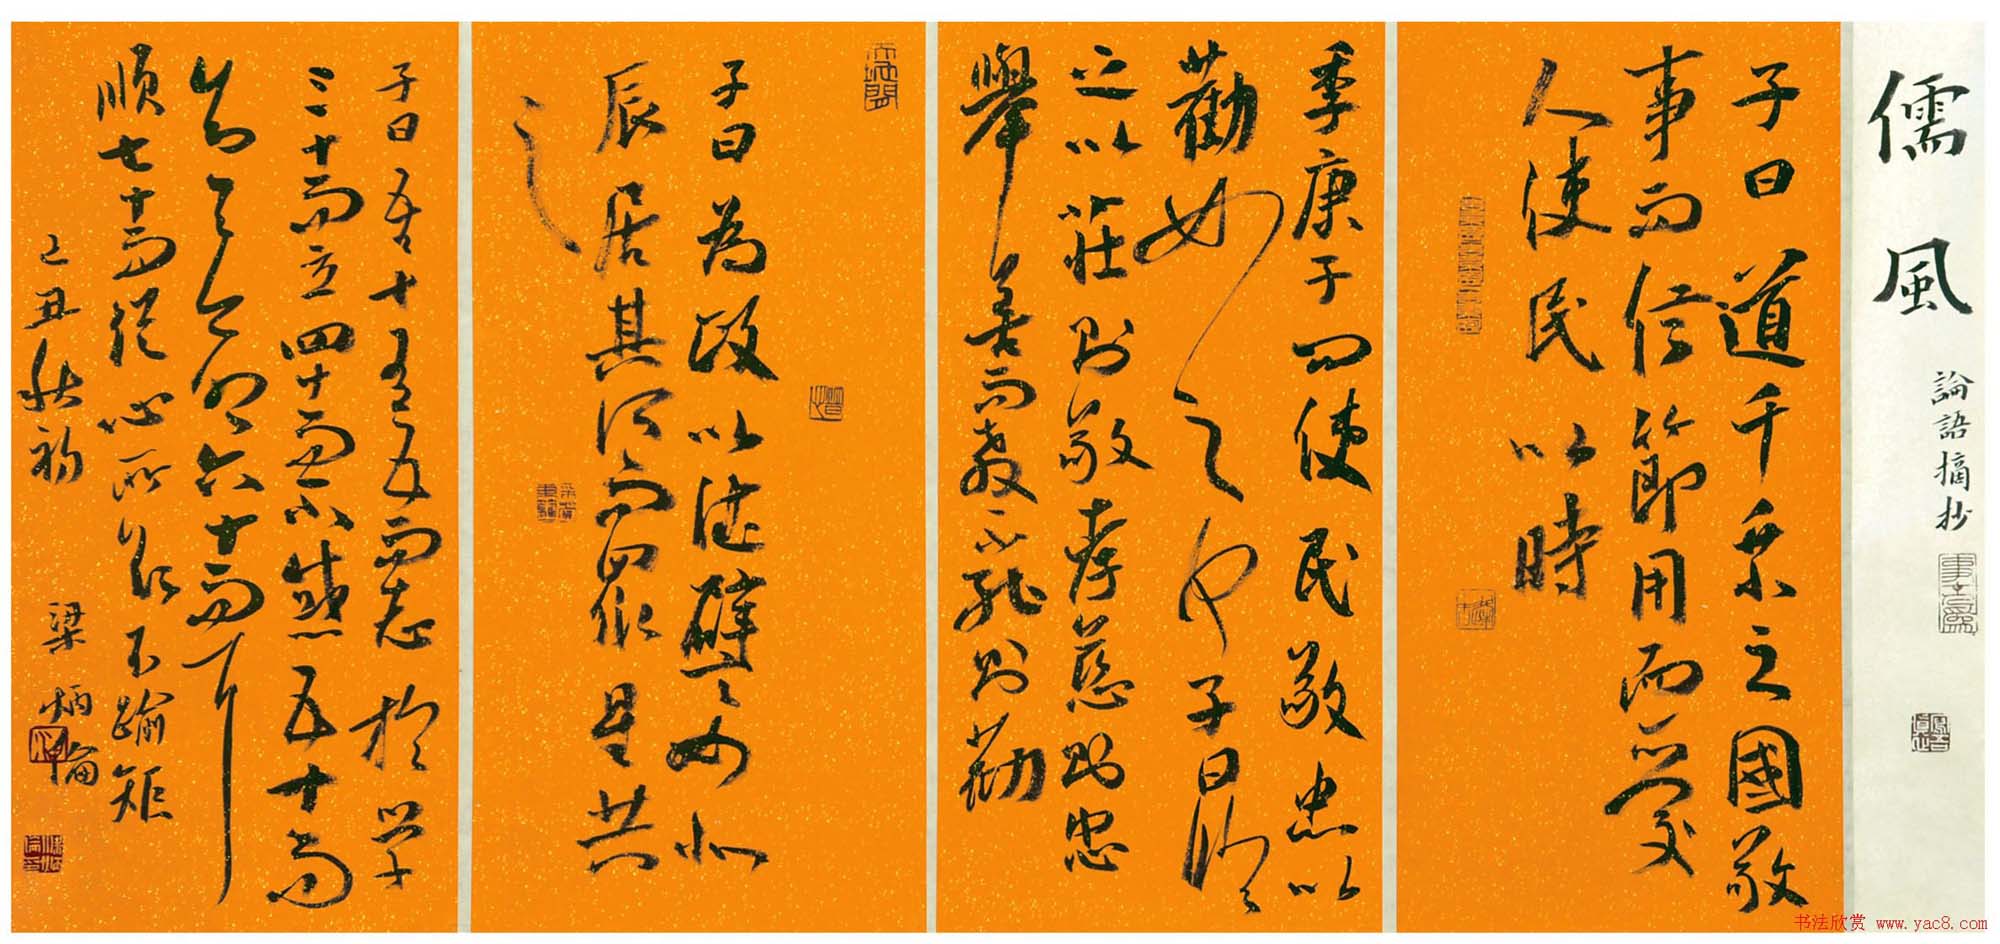 儒風
論語摘抄
子曰道千乘之國敬
事而信節用而愛
人使民以時
季康子問使民敬忠以
勸如之何子曰臨
之以莊則敬孝慈則忠
舉善而教不能則勸
子曰為政以德譬如北
辰居其所而眾星共
之
子曰吾十有五而志於學
三十而立四十而不惑五十而
知天命六十而耳
順七十而從心所欲不踰矩
己丑秋初 梁炳倫
书法欣赏 www.yac8.com